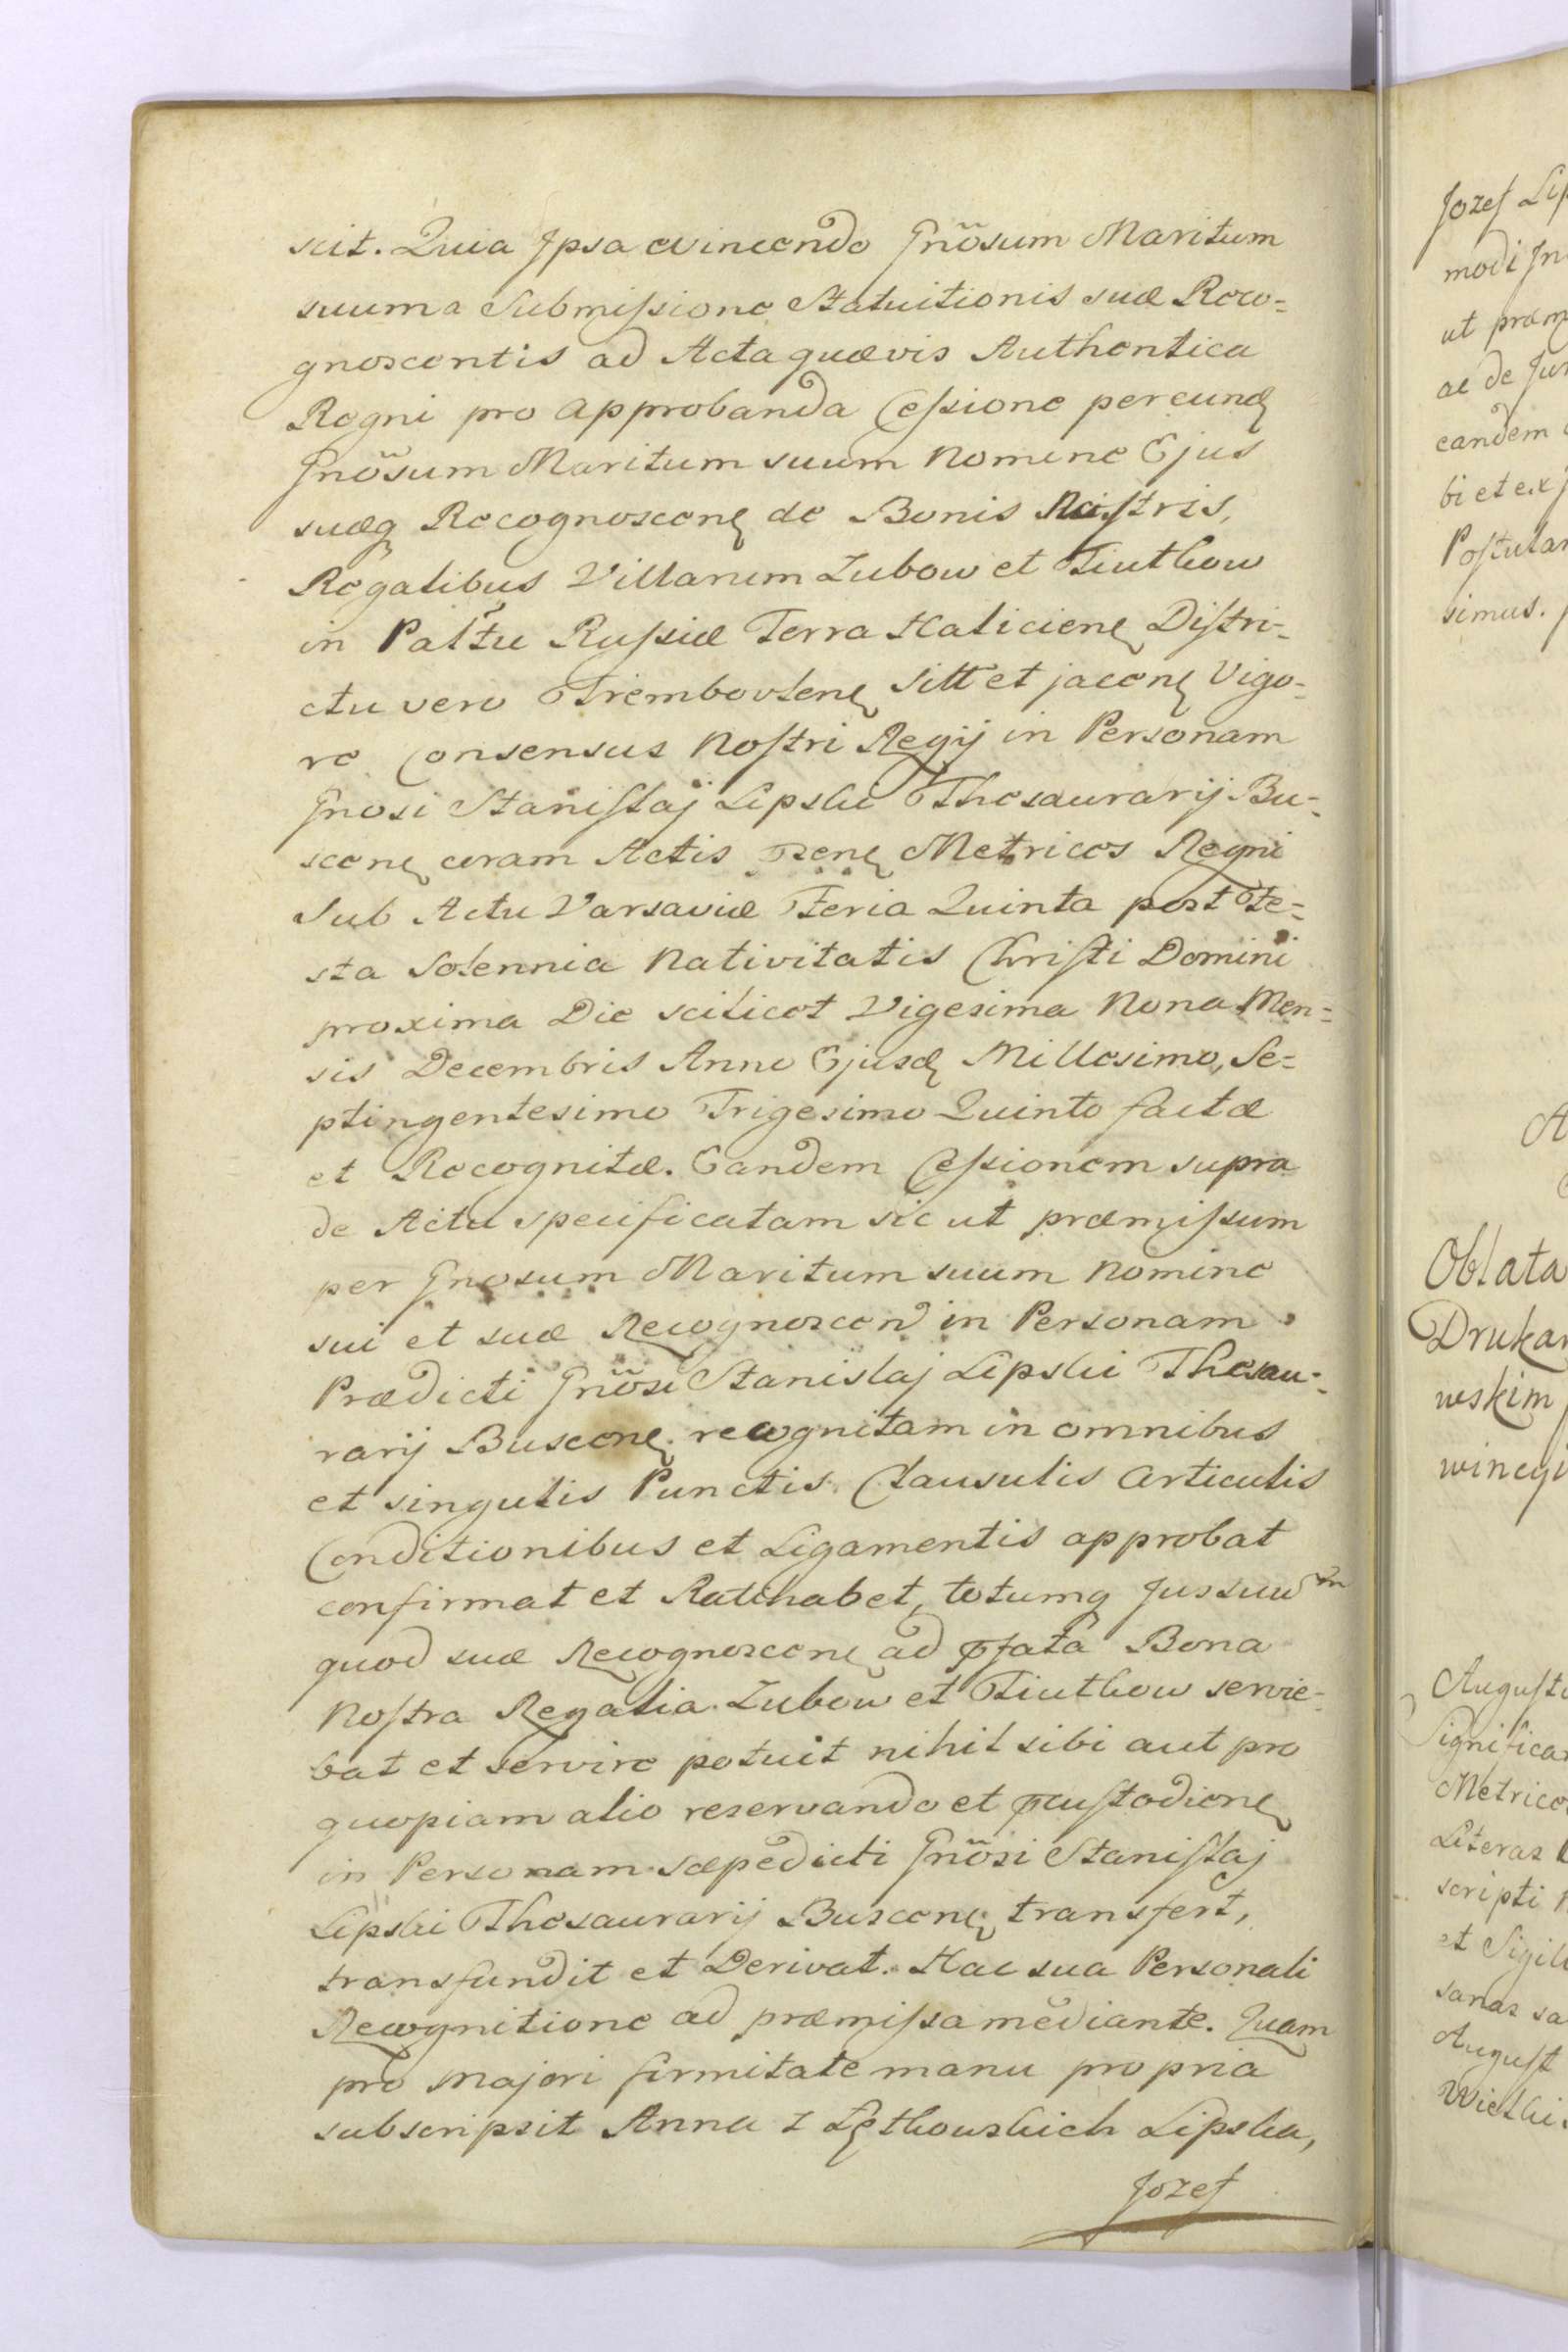 scit. Quia Ipsa evincendo Gnõsum Maritum
suum a Submissione Statuitionis suæ Reco=
gnoscentis ad Acta quævis Authentica
Regni pro approbanda Cessione per eund
Gnõsum Maritum suum nomine Ejus
suæq Recognoscen de Bonis Nostris,
Regalibus Villarum Zubow et Tiutkow
in Palttu Russiæ Terra Halicien Distri=
ctu vero Trembovlen Sitt et jacen Vigo=
re Consensus Nostri Regij in Personam
Gnosi Stanislaj Lipski Thesaurarij Bu=
scen coram Actis psen Metrices Regni
Sub Actu Varsaviæ Feria Quinta post Fe=
sta Solennia Nativitatis Christi Domini
proxima Die scilicet Vigesima Nona Men=
sis Decembris Anno Ejusd Millesimo, Se=
ptingentesimo Trigesimo Quinto factæ
et Recognitæ. Eandem Cessionem supra
de Actu specificatam sic ut præmissum
per Gnosum Maritum suum nomine
sui et suæ Recognoscen in Personam
Prædicti Gnõsi Stanislaj Lipski Thesau=
rarij Buscen. recognitam in omnibus
et singulis Punctis. Clausulis Articulis
Conditionibus et Ligamentis approbat
confirmat et Ratihabet, totumq Jus suum
quod suæ Recognoscen ad pfata Bona
Nostra Regalia. Zubow et Tiutkow servie=
bat et servire potuit nihil sibi aut pro
quopiam alio reservando et pcustodien
in Personam sæpedicti Gnõsi Stanislaj
Lipski Thesaurarij Buscen. transfert,
transfundit et Derivat. Hac sua Personali
Recognitione ad præmissa mediante. Quam
pro majori firmitate manu propria
subscripsit Anna z Łętkowskich Lipska,
Jozef
Jozef Lip
modi
ut præm
ac de Jur
eandem
bi et ex
Postular
simus.
Oblata
Drukar
wskim
wincyi
Augusto
Significa
Metrico
Literas
scripti
et Sigill
sanas sa
August
Wielki